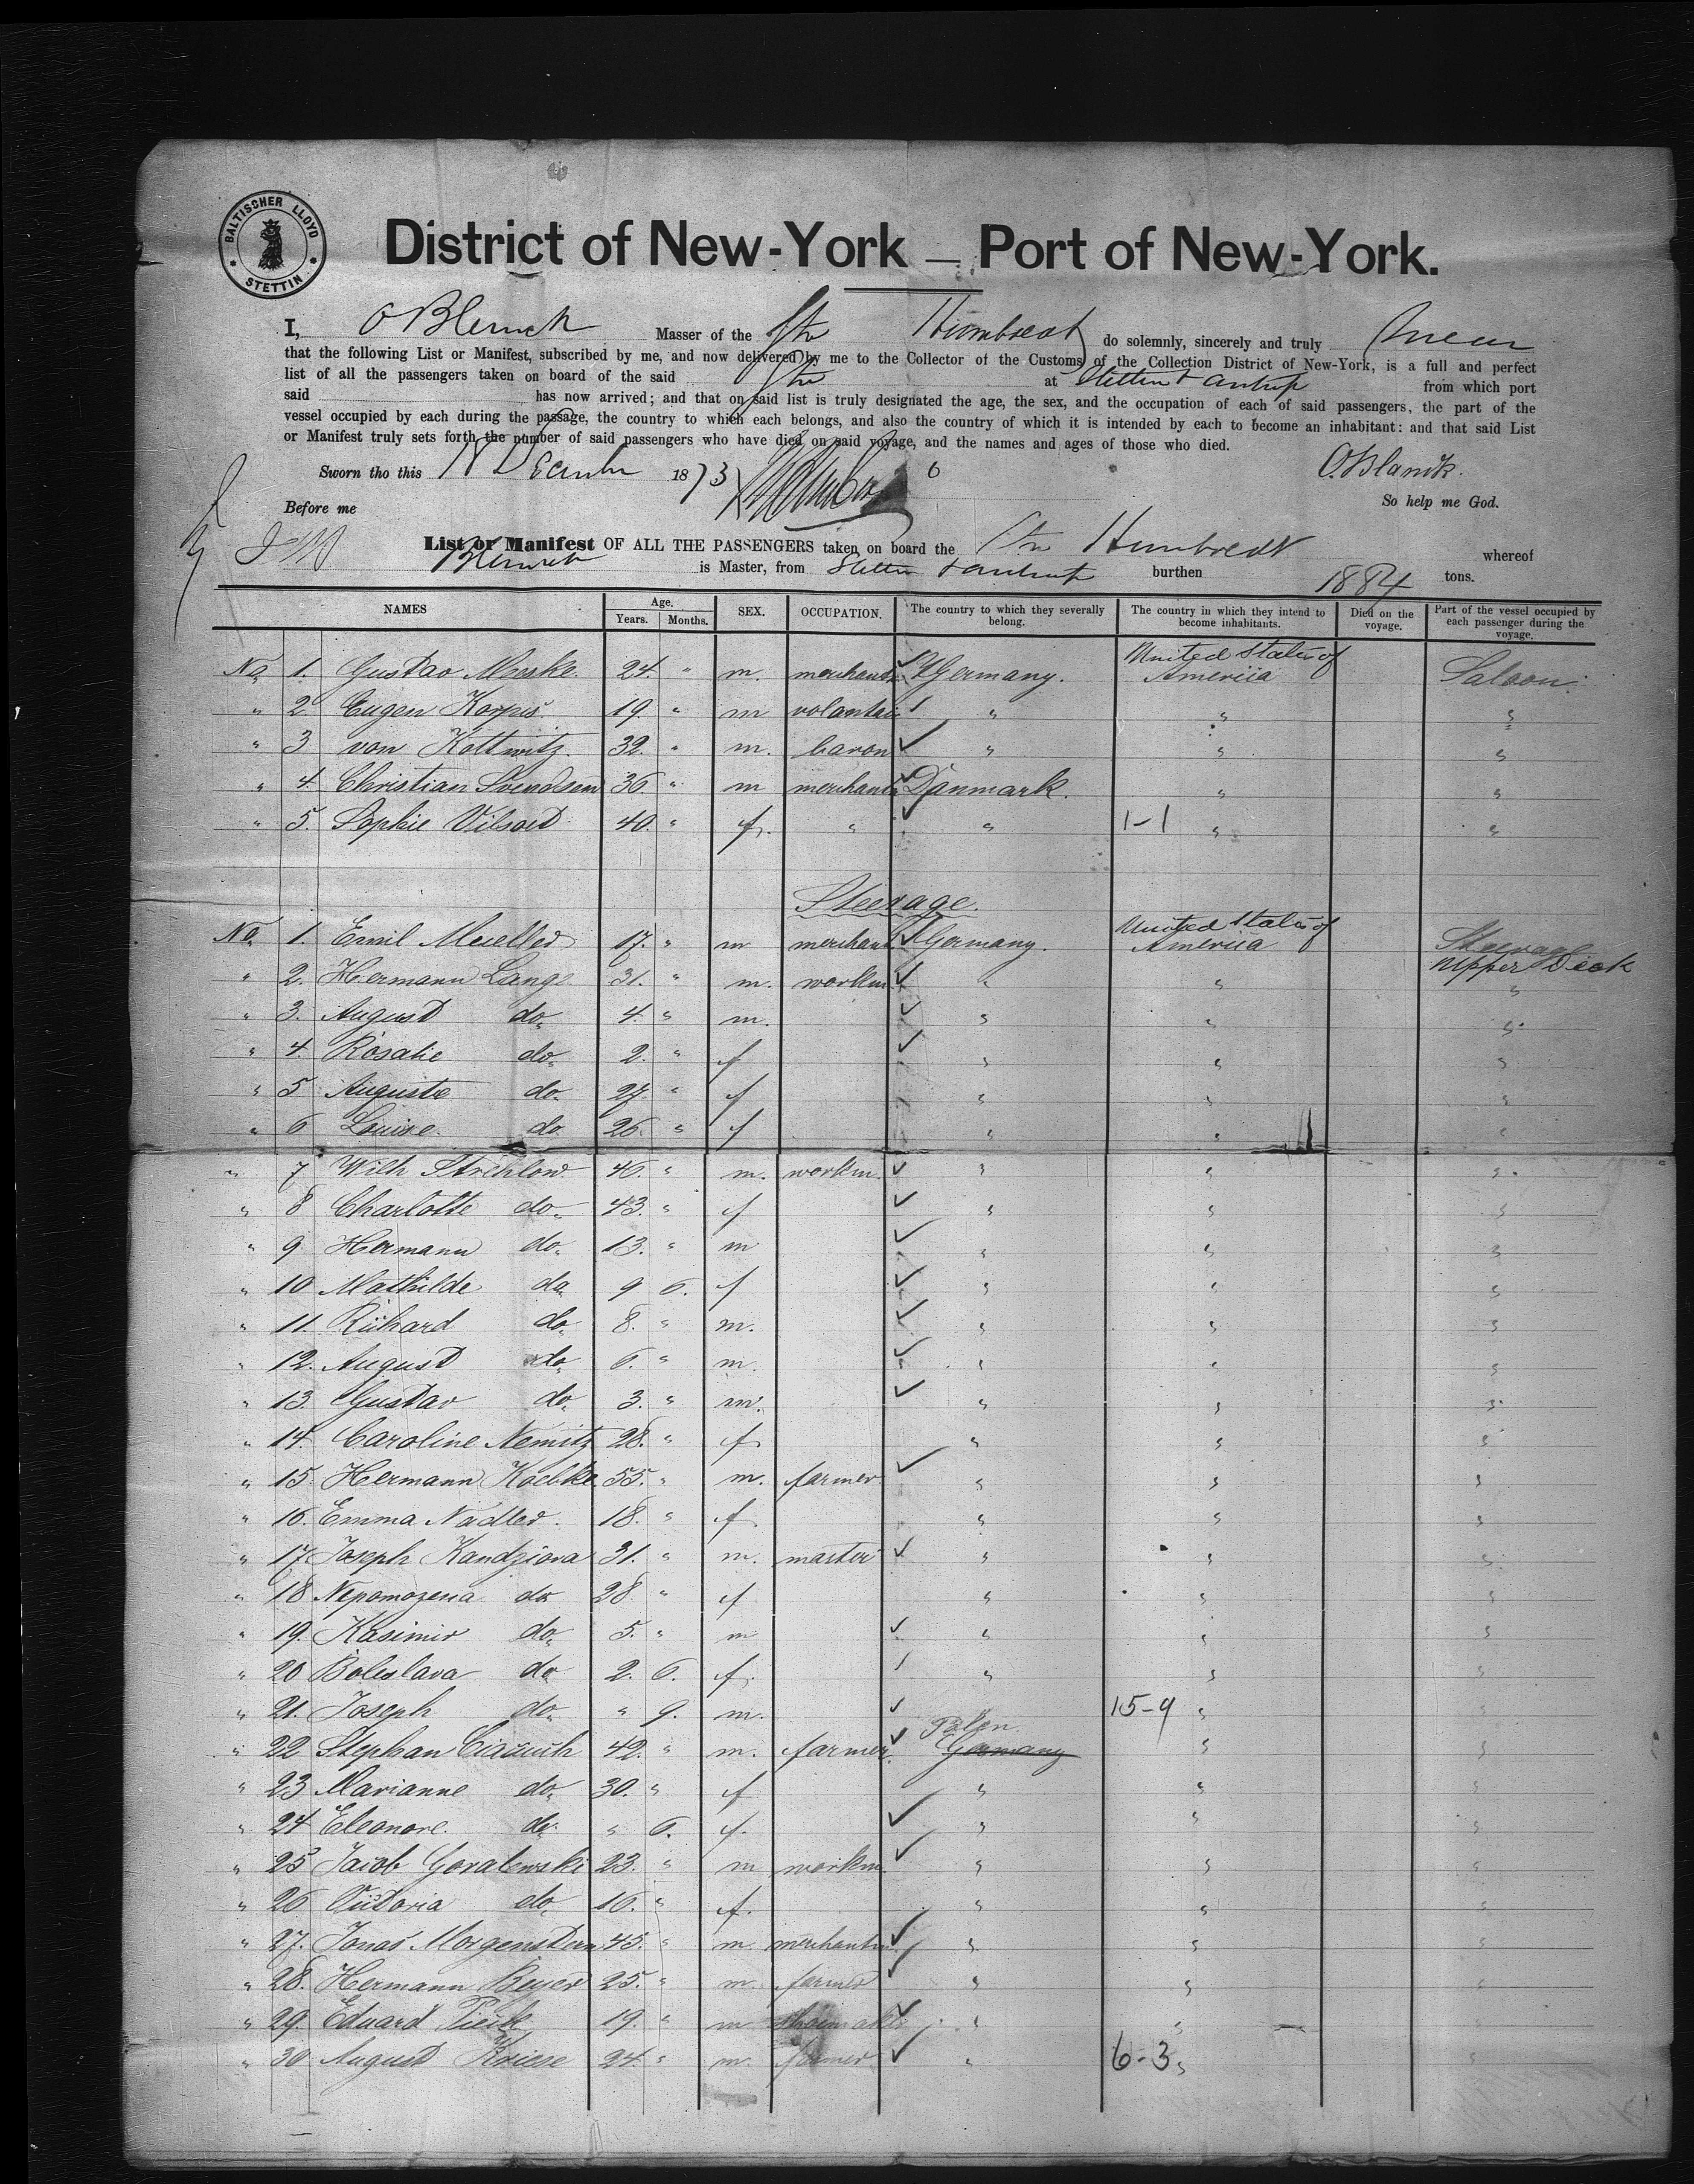 BALTISCHER LLOYD
STETTIN
District of New-York — Port of New-York.
I, O Blanck Masser of the Str Humboldt do solemnly, sincerely and truly swear
that the following List or Manifest, subscribed by me, and now delivered by me to the Collector of the Customs of the Collection District of New-York, is a full and perfect
list of all the passengers taken on board of the said Str at Stettin & Antwp from which port
said has now arrived; and that on said list is truly designated the age, the sex, and the occupation of each of said passengers, the part of the
vessel occupied by each during the passage, the country to which each belongs, and also the country of which it is intended by each to become an inhabitant: and that said List
or Manifest truly sets forth the number of said passengers who have died on said voyage, and the names and ages of those who died.
Sworn tho this 18 December 1873 O. Blanck.
Before me So help me God.
List or Manifest OF ALL THE PASSENGERS taken on board the Str Humboldt whereof
Blanck is Master, from Stettin & Antwerp burthen 1884 tons.
NAMES Age. Years. Months. SEX. OCCUPATION. The country to which they severally belong. The country in which they intend to become inhabitants. Died on the voyage. Part of the vessel occupied by each passenger during the voyage.
No. 1. Gustav Meske. 24. " m. merchant Germany. United States of America Saloon.
" 2. Eugen Korpis. 19. " m volontair " " "
" 3 von Kottwitz 32. " m. baron " " "
" 4. Christian Svendsen 36 " m merchant Danmark. " "
" 5. Sophie Vilsoed 40. " f. " " 1-1 " "
Steerage.
No. 1. Emil Mueller 17. " m merchant Germany. United States of America Steerage Upper Deck
" 2. Hermann Lange 31. " m. workm. " " "
" 3. August do. 4. " m. " " "
" 4. Rosalie do. 2. " f " " "
" 5 Auguste do. 27 " f " " "
" 6 Louise. do. 26. " f " " "
" 7 Wilh Strehlow 46. " m. workm. " " "
" 8 Charlotte do. 43. " f " " "
" 9. Hermann do. 13. " m " " "
" 10 Mathilde do. 9 6. f " " "
" 11. Richard do. 8. " m. " " "
" 12. August do. 6. " m. " " "
" 13. Gustav do. 3. " m. " " "
" 14. Caroline Nemitz 28. " f " " "
" 15. Hermann Koebke 55. " m. farmer " " "
" 16. Emma Nadler. 18. " f. " " "
" 17. Joseph Kandziora 31. " m. master " " "
" 18 Nepomozena do. 28. " f " " "
" 19. Kasimir do. 5. " m " " "
" 20 Boleslava do 2. 6. f. " " "
" 21. Joseph do. " 9. m. " 15-9 " "
" 22 Stephan 42. " m. farmer. Polen Germany " "
" 23 Marianne do. 30. " f " " "
" 24 Eleonore. do. " 6. f. " " "
" 25 Jacob Goralewski 23. " m workm. " " "
" 26 Victoria do. 16. " f. " " "
" 27. Jonas Morgenstern 45. " m. merchant " " "
" 28. Hermann Beyer 25. " m. farmer " " "
" 29. Eduard 19. " m shoemaker " " "
" 30 August Kriese 24. " m. farmer " 6-3 " "